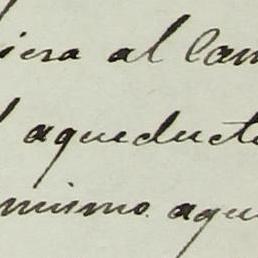 iera al Cam
l aqueducto
mismo aqu